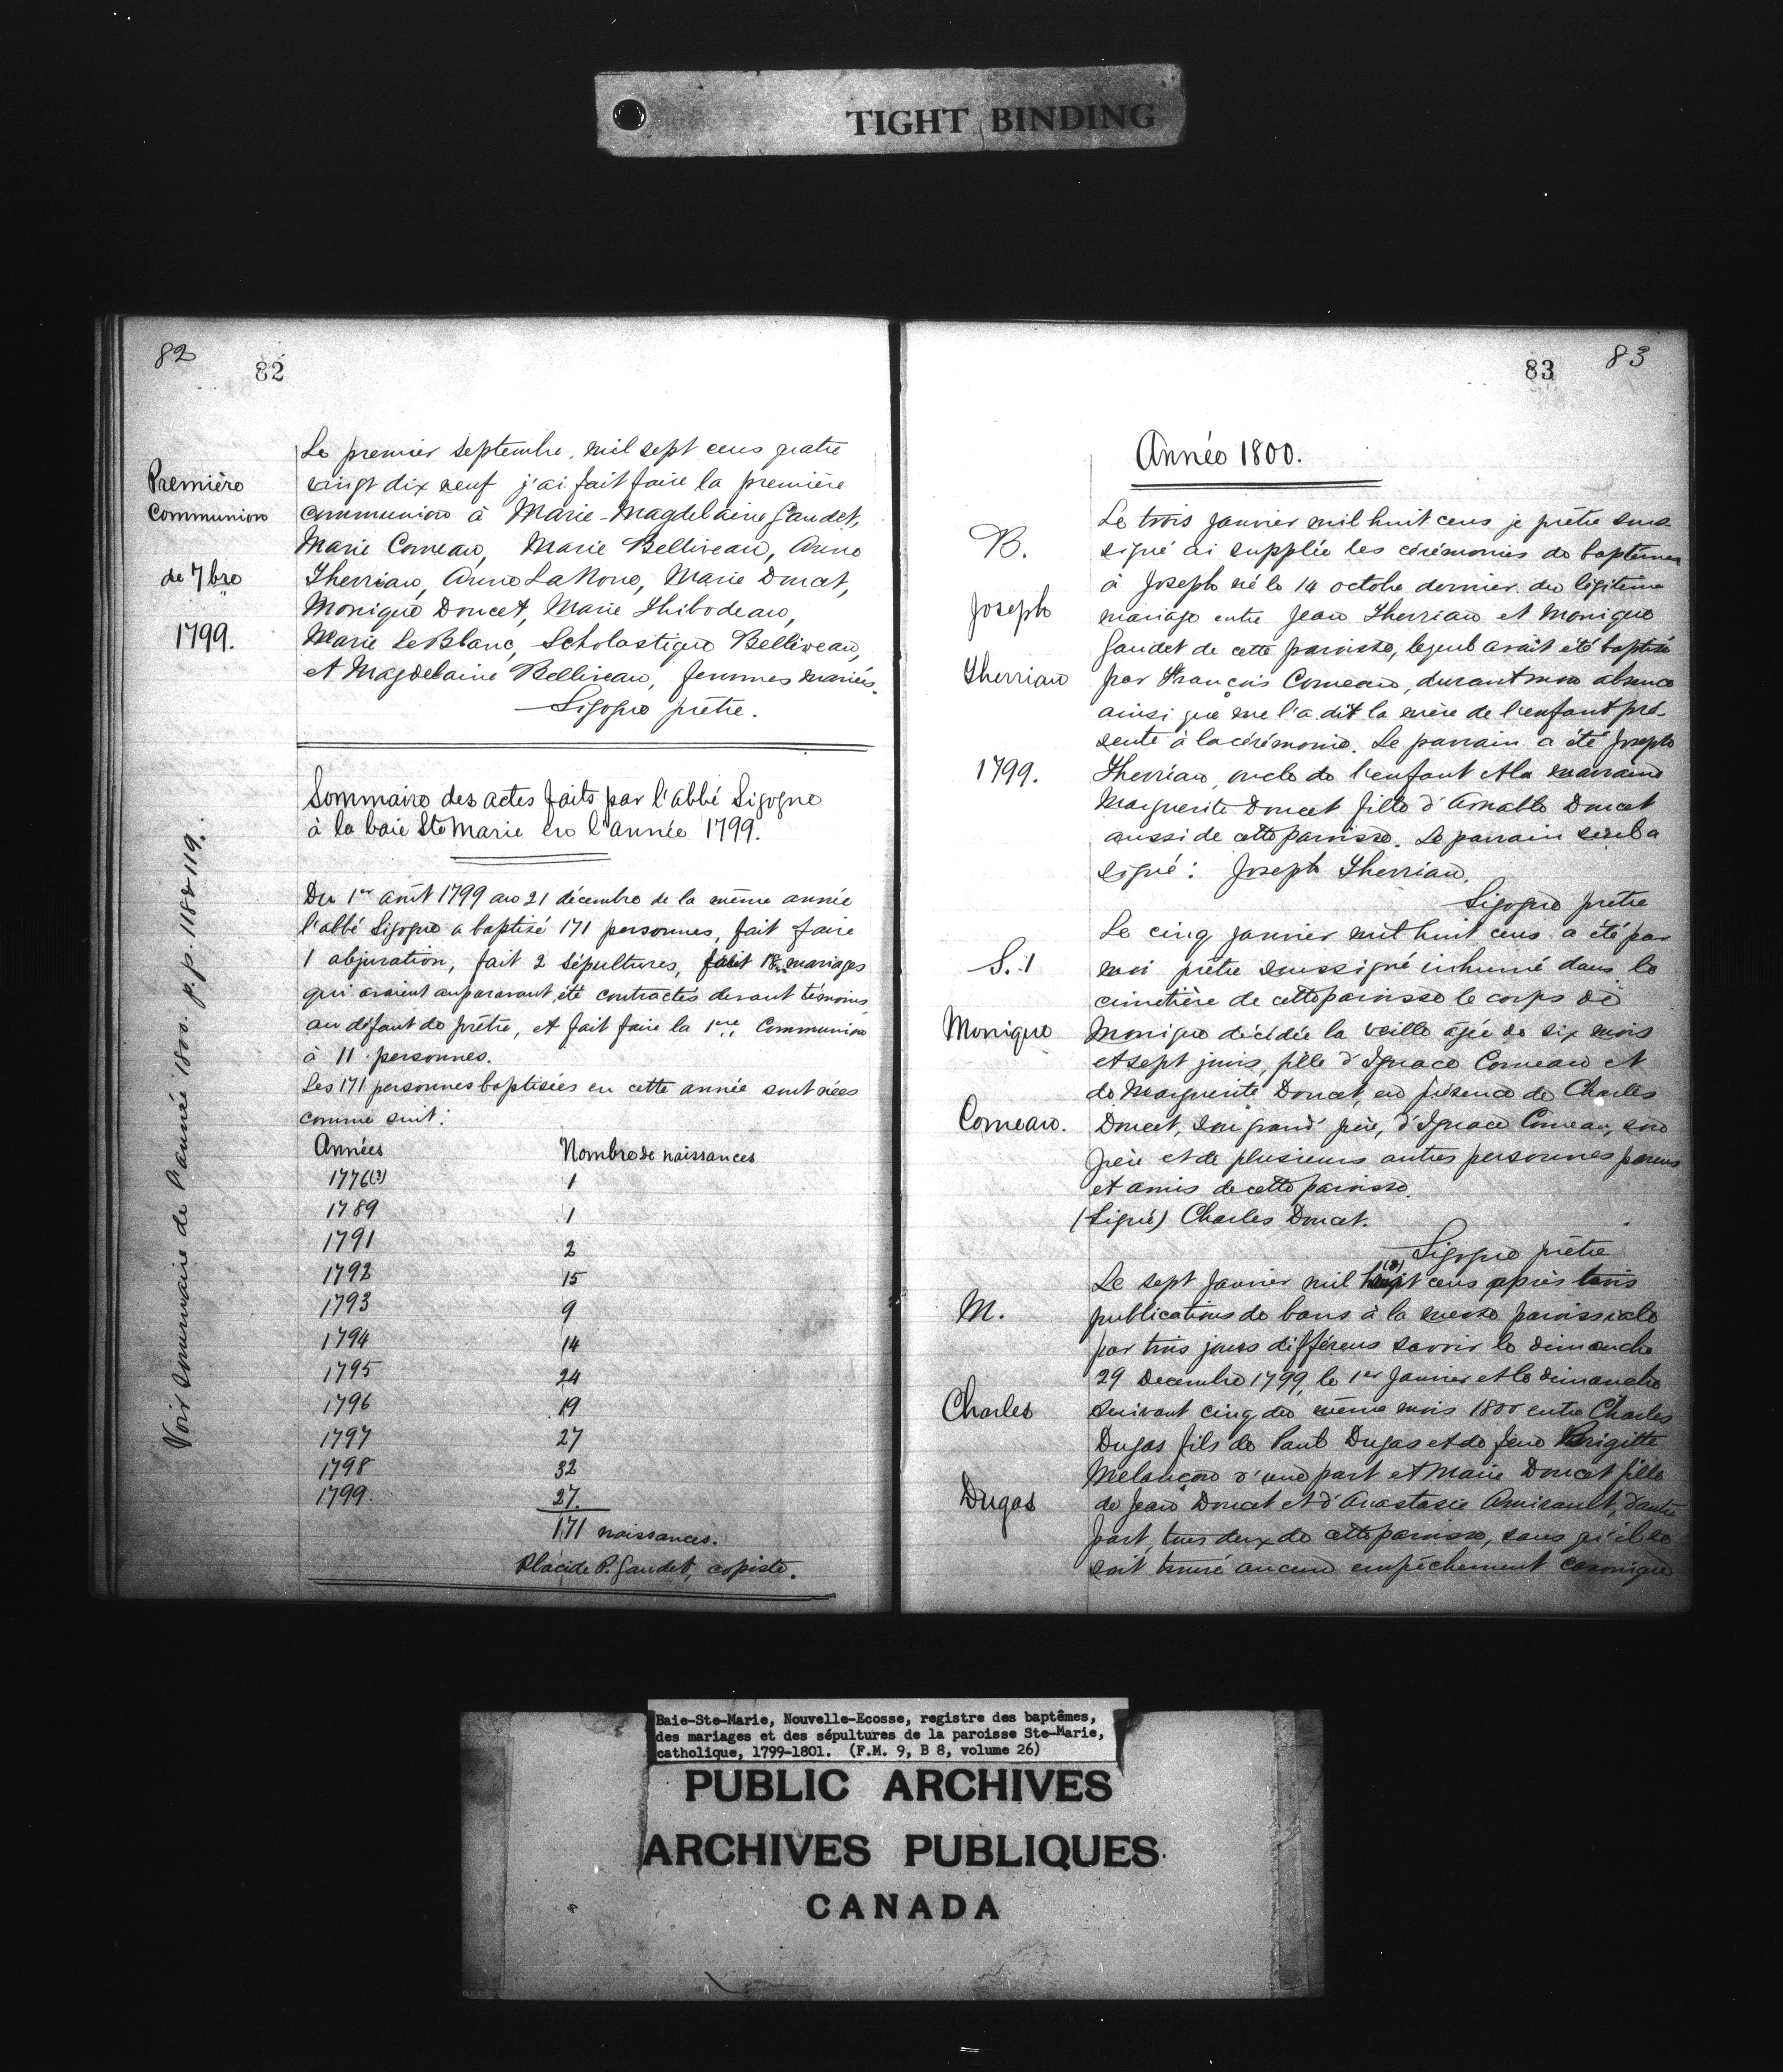 TIGHT BINDING
82
82
Première
Communion
de 7bre
1799.
Le premier Septembre, mil sept cens quatre
vingt dix neuf j'ai fait faire la première
communion à Marie-Magdelaine Gaudet,
Marie Comeau, Marie Belliveau, Anne
Therriau, Anne LaNoue, Marie Doucet,
Monique Doucet, Marie Thibodeau,
Marie LeBlanc, Scholastique Belliveau,
et Magdelaine Belliveau, femmes mariés.
Sigogne prêtre.
Sommaire des actes faits par l'abbé Sigogne
à la baie Ste Marie en l'année 1799.
Du 1er août 1799 au 21 décembre de la même année
l'abbé Sigogne a baptisé 171 personnes, fait faire
1 abjuration, fait 2 sépultures, fait 18 mariages
qui avaient auparavant été contractés devant témoins
au défaut de prêtre, et fait faire la 1ère Communion
à 11 personnes.
Les 171 personnes baptisées en cette année sont nées
comme suit:
Années Nombre de naissances
1776(?) 1
1789 1
1791 2
1792 15
1793 9
1794 14
1795 24
1796 19
1797 27
1798 32
1799. 27.
171 naissances.
Placide P. Gaudet, copiste.
Voir sommaire de l'année 1800. p.p. 118 & 119.
83
83
Année 1800.
B.
Joseph
Therriau
1799.
Le trois janvier mil huit cens je prêtre sous
signé ai supplée les cérémonies de baptêmes
à Joseph né le 14 octobre dernier du légitime
mariage entre Jean Therriau et Monique
Gaudet de cette paroisse, lequel avait été baptisé
par François Comeau, durant mon absence
ainsi que me l'a dit la mère de l'enfant pré-
sente à la cérémonie. Le parrain a été Joseph
Therriau, oncle de l'enfant et la marraine
Marguerite Doucet fille d'Amable Doucet
aussi de cette paroisse. Le parrain seul a
signé: Joseph Therriau.
Sigogne prêtre
S. 1
Monique
Comeau.
Le cinq janvier mil huit cens a été par
moi prêtre soussigné inhumé dans le
cimetière de cette paroisse le corps de
Monique décédée la veille âgée de six mois
et sept jours, fille d'Ignace Comeau et
de Marguerite Doucet, en présence de Charles
Doucet, son grand' père, d'Ignace Comeau, son
père et de plusieurs autres personnes parens
et amis de cette paroisse.
(Signé) Charles Doucet.
Sigogne prêtre
M.
Charles
Dugas
Le sept Janvier mil huit cens après trois
publications de bans à la messe paroissiale
par trois jours différens savoir le dimanche
29 Decembre 1799, le 1er Janvier et le dimanche
suivant cinq du même mois 1800 entre Charles
Dugas fils de Paul Dugas et de feue Brigitte
Melançon d'une part et Marie Doucet fille
de Jean Doucet et d'Anastasie Amirault, d'autre
part, tous deux de cette paroisse, sans qu'il se
soit trouvé aucun empêchement canonique
Baie-Ste-Marie, Nouvelle-Ecosse, registre des baptêmes,
des mariages et des sépultures de la paroisse Ste-Marie,
catholique, 1799-1801. (F.M. 9, B 8, volume 26)
PUBLIC ARCHIVES
ARCHIVES PUBLIQUES
CANADA